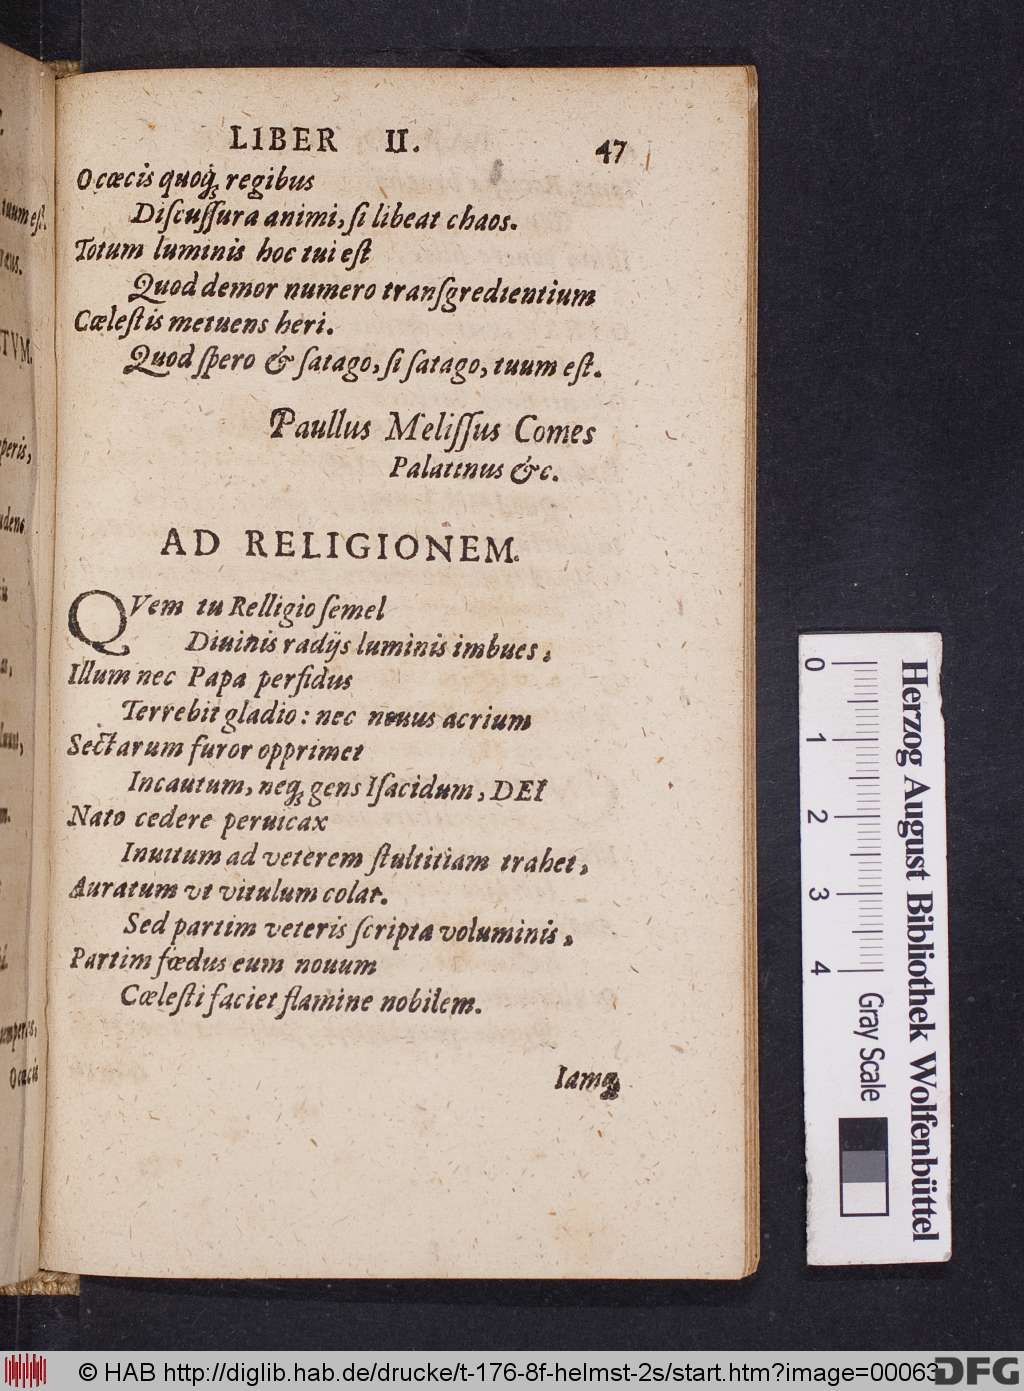 LIBER II. 47
O cœcis quoq; regibus
Diſcuſſura animi, ſi libeat chaos.
Totum luminis hoc tui eſt
Quod demor numero tranſgredientium
Cœleſtis metuens heri.
Quod ſpero & ſatago, ſi ſatago, tuum eſt.
Paullus Meliſſus Comes
Palatinus &c.
AD RELIGIONEM.
QVem tu Relligio ſemel
Diuinis radijs luminis imbues,
Illum nec Papa perfidus
Terrebit gladio: nec nouus acrium
Sectarum furor opprimet
Incautum, neq; gens Iſacidum, DEI
Nato cedere peruicax
Inuitum ad veterem ſtultitiam trahet,
Auratum vt vitulum colat.
Sed partim veteris ſcripta voluminis,
Partim fœdus eum nouum
Cœleſti faciet flamine nobilem.
Iamq;
tuum eſt.
TVM.
peris,
Ocæcis
0 1 2 3 4
Gray Scale
Herzog August Bibliothek Wolfenbüttel
© HAB http://diglib.hab.de/drucke/t-176-8f-helmst-2s/start.htm?image=00063
DFG